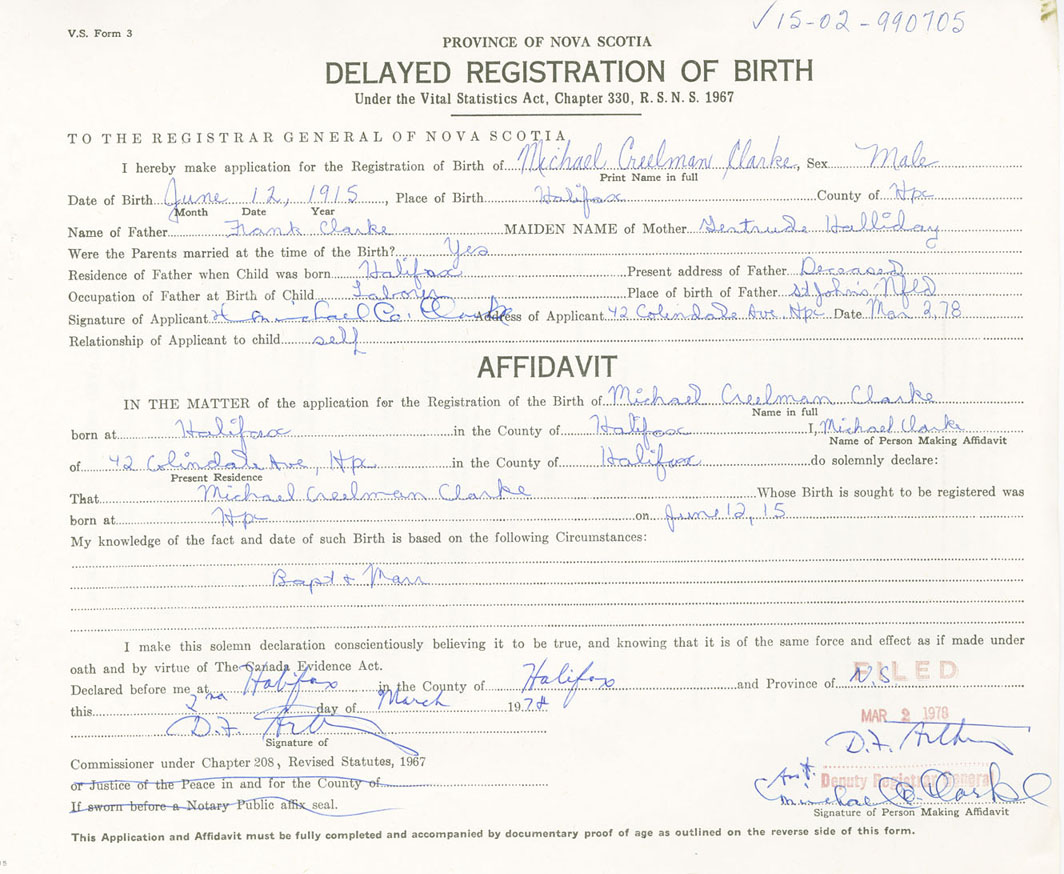 V.S. Form 3
✓15-02-990705
PROVINCE OF NOVA SCOTIA
DELAYED REGISTRATION OF BIRTH
Under the Vital Statistics Act, Chapter 330, R.S.N.S. 1967
TO THE REGISTRAR GENERAL OF NOVA SCOTIA
I hereby make application for the Registration of Birth of Michael Creelman Clarke, Sex Male
Print Name in full
Date of Birth June 12, 1915, Place of Birth Halifax County of Hfx
Month Date Year
Name of Father Frank Clarke MAIDEN NAME of Mother Gertrude Halliday
Were the Parents married at the time of the Birth? Yes
Residence of Father when Child was born Halifax Present address of Father Deceased
Occupation of Father at Birth of Child Laborer Place of birth of Father St John's, Nfld
Signature of Applicant Michael C. Clarke Address of Applicant 42 Colindale Ave, Hfx Date Mar 2, 78
Relationship of Applicant to child self
AFFIDAVIT
IN THE MATTER of the application for the Registration of the Birth of Michael Creelman Clarke
Name in full
born at Halifax in the County of Halifax I, Michael Clarke
Name of Person Making Affidavit
of 42 Colindale Ave, Hfx in the County of Halifax do solemnly declare:
Present Residence
That Michael Creelman Clarke Whose Birth is sought to be registered was
born at Hfx on June 12, 15
My knowledge of the fact and date of such Birth is based on the following Circumstances:
Bapt & Marr
I make this solemn declaration conscientiously believing it to be true, and knowing that it is of the same force and effect as if made under
oath and by virtue of The Canada Evidence Act.
FILED
Declared before me at Halifax in the County of Halifax and Province of N.S
this 2nd day of March 1978
MAR 2 1978
D.F. Arthur
D.F. Arthur
Signature of
Commissioner under Chapter 208, Revised Statutes, 1967
or Justice of the Peace in and for the County of
Asst. Deputy Registrar General
Michael C. Clarke
If sworn before a Notary Public affix seal.
Signature of Person Making Affidavit
This Application and Affidavit must be fully completed and accompanied by documentary proof of age as outlined on the reverse side of this form.